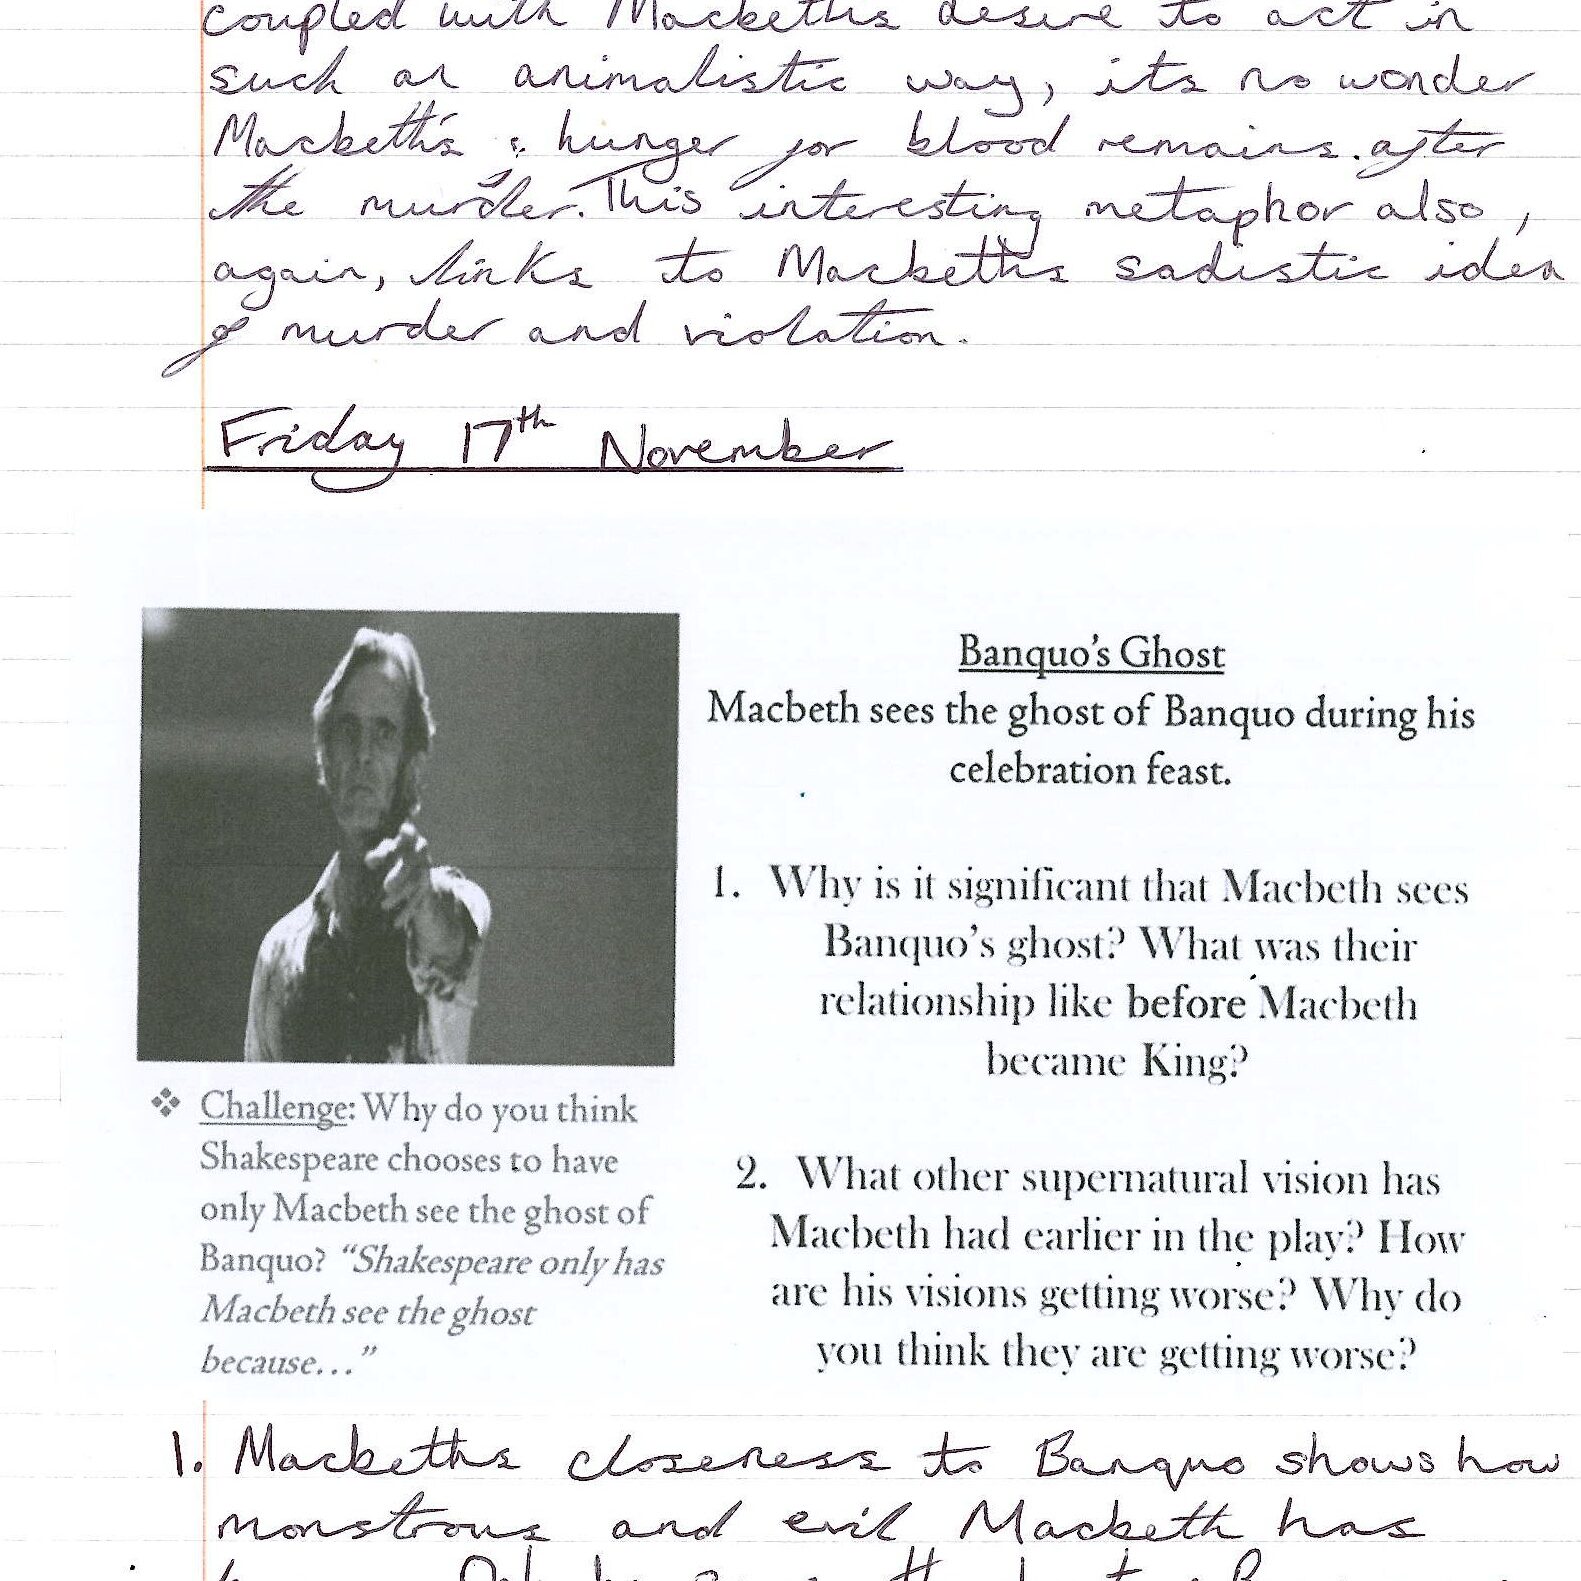 coupled with Macbeths desire to act in
such an animalistic way, its no wonder
Macbeth's hunger for blood remains after
the murder. This interesting metaphor also,
again, links to Macbeths sadistic idea
of murder and violation.
Friday 17th November
Banquo's Ghost
Macbeth sees the ghost of Banquo during his
celebration feast.
1. Why is it significant that Macbeth sees
Banquo's ghost? What was their
relationship like before Macbeth
became King?
2. What other supernatural vision has
Macbeth had earlier in the play? How
are his visions getting worse? Why do
you think they are getting worse?
❖ Challenge: Why do you think
Shakespeare chooses to have
only Macbeth see the ghost of
Banquo? "Shakespeare only has
Macbeth see the ghost
because…"
1. Macbeths closeness to Banquo shows how
monstrous and evil Macbeth has